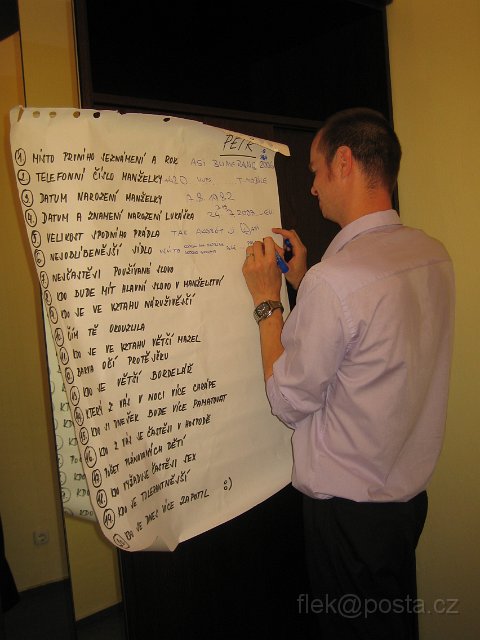 PETR
1. MÍSTO PRVNÍHO SEZNÁMENÍ A ROK ASI BUMERANG 2006
2. TELEFONNÍ ČÍSLO MANŽELKY +420 T-MOBILE
3. DATUM NAROZENÍ MANŽELKY 7.8.1982
4. DATUM A ZNAMENÍ NAROZENÍ LUKÁŠKA
5. VELIKOST SPODNÍHO PRÁDLA TAK AKORÁT
6. NEJOBLÍBENĚJŠÍ JÍDLO
7. NEJČASTĚJI POUŽÍVANÉ SLOVO
8. KDO BUDE MÍT HLAVNÍ SLOVO V MANŽELSTVÍ
9. KDO JE VE VZTAHU NÁRUŽIVĚJŠÍ
10. ČÍM TĚ OKOUZLILA
11. KDO JE VE VZTAHU VĚTŠÍ MAZEL
12. BARVA OČÍ PROTĚJŠKU
13. KDO JE VĚTŠÍ BORDELÁŘ
14. KTERÝ Z VÁS V NOCI VÍCE CHRÁPE
15. KDO SI DNEŠEK BUDE VÍCE PAMATOVAT
16. KDO Z VÁS JE ČASTĚJI V HOSPODĚ
17. POČET PLÁNOVANÝCH DĚTÍ
18. KDO VYŽADUJE ČASTĚJI SEX
19. KDO JE TOLERANTNĚJŠÍ
KDO JE DNES VÍCE ZAPOTIL :)
flek@posta.cz